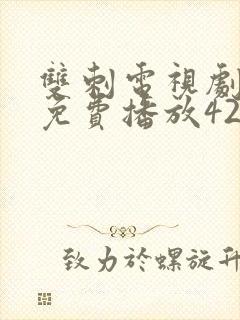 雙刺電視劇
免費播放42
致力於螺旋升